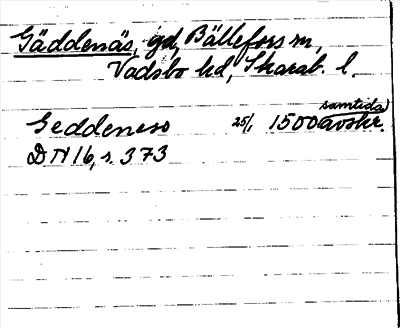 Gäddenäs, gd, Bällefors sn,
Vadsbo hd, Skarab. l.
samtida
Geddeness 25/1 1500 avskr.
DN 16, s. 373